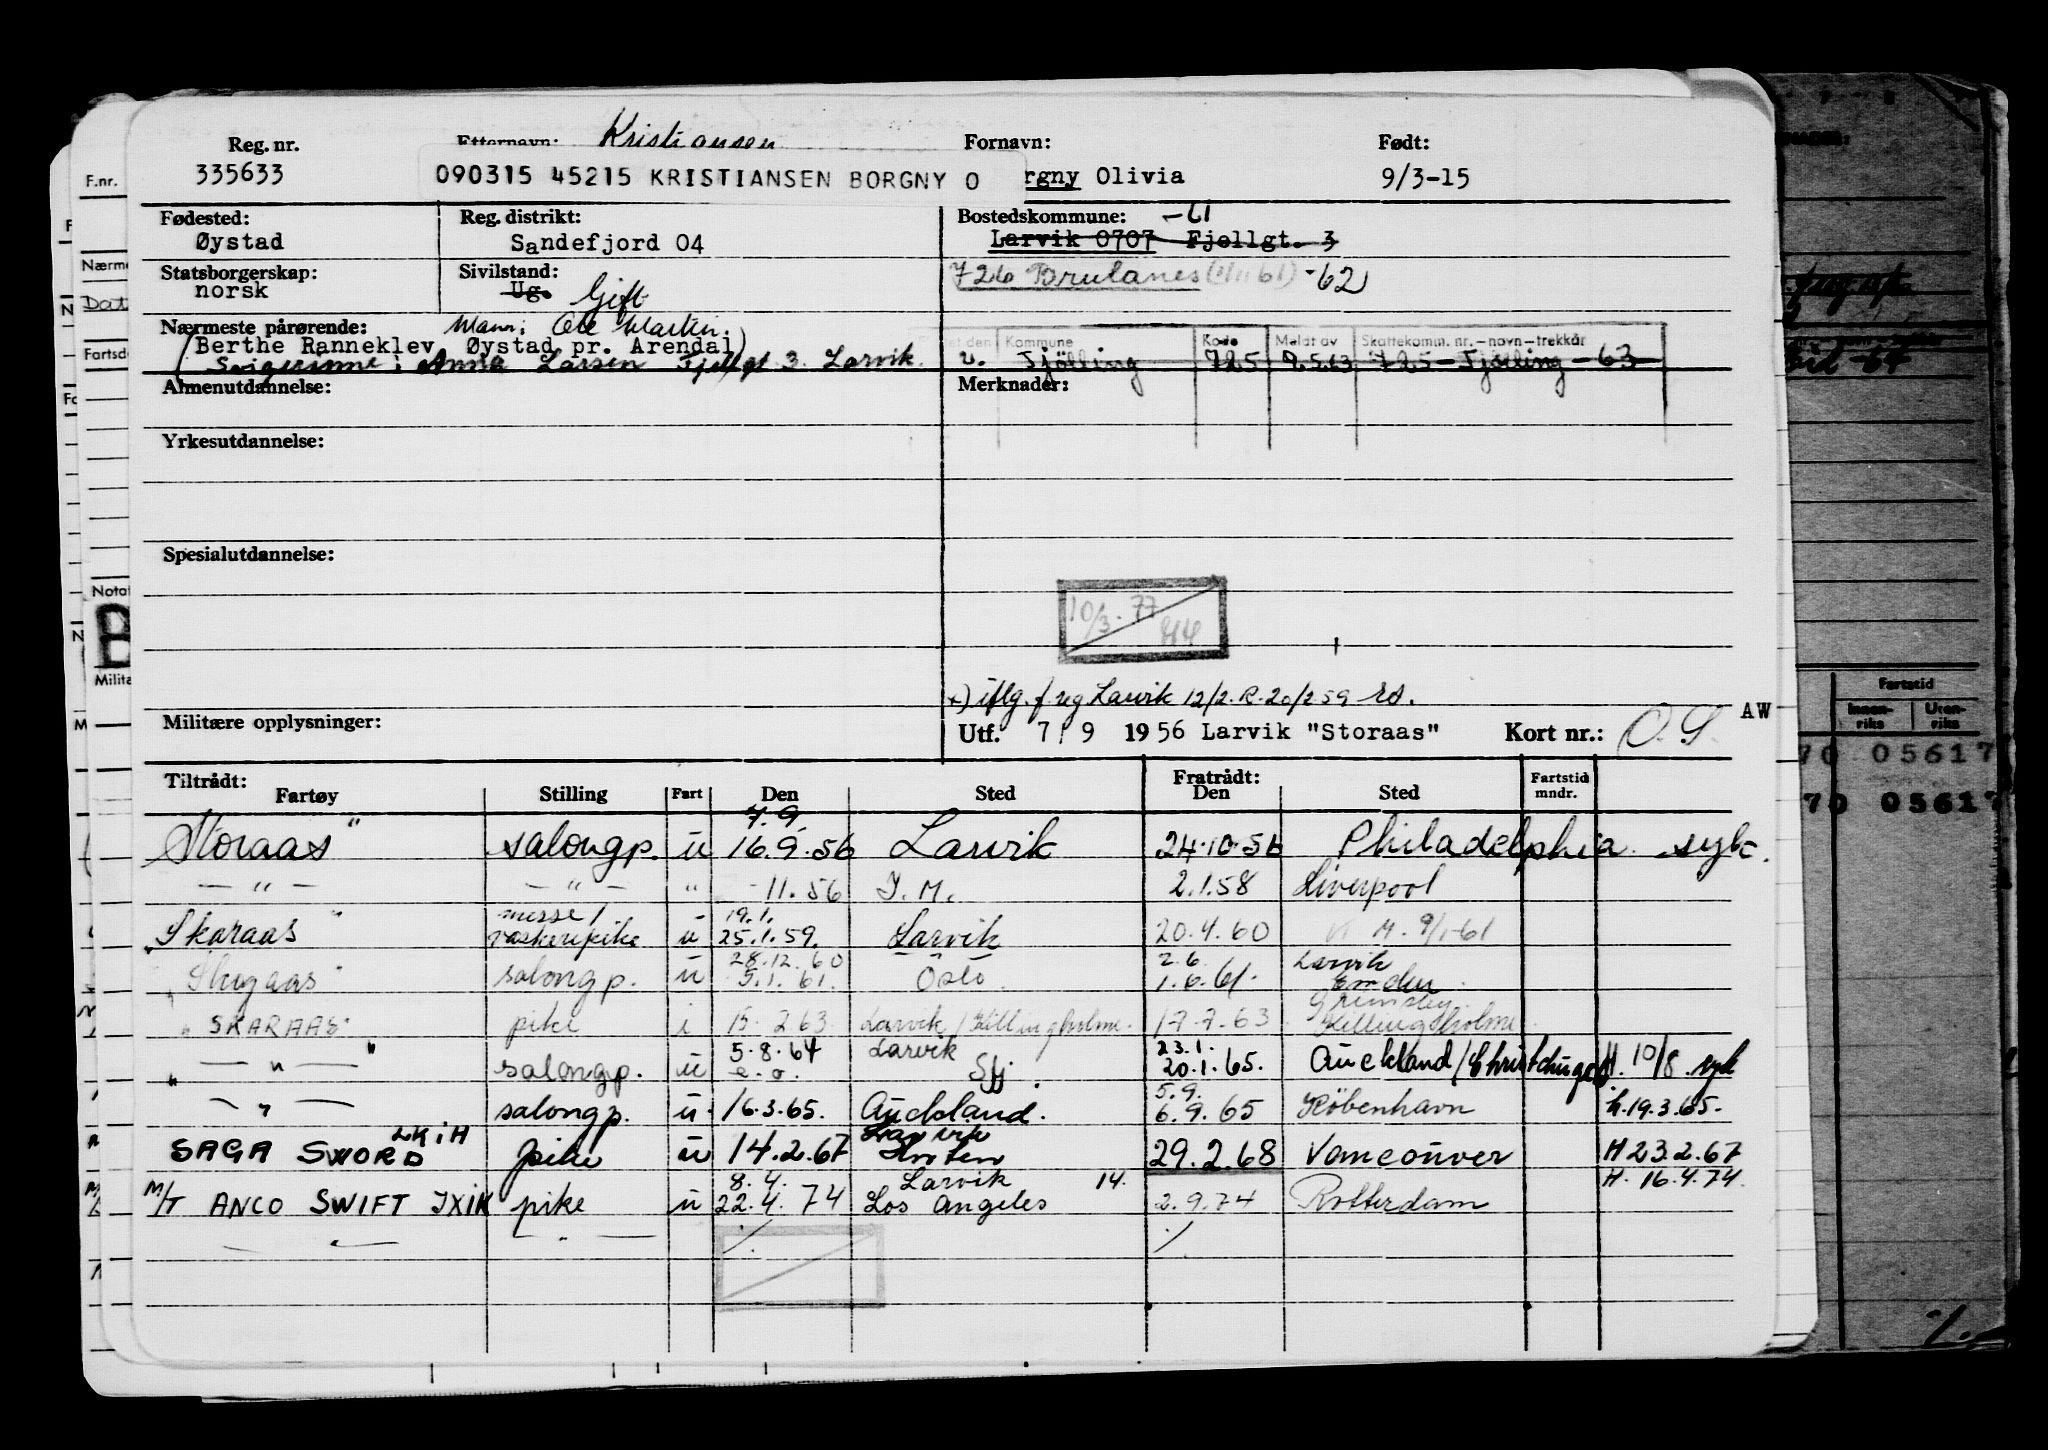 Reg. nr. Etternavn: Kristiansen Fornavn: Født:
335633 090315 45215 KRISTIANSEN BORGNY O rgny Olivia 9/3-15
Fødested: Reg. distrikt: Bostedskommune: -61
Øystad Sandefjord 04 Larvik 0707 Fjellgt. 3
Statsborgerskap: Sivilstand: 726 Brunlanes (1/11 61) -62
norsk Ug. Gift
Nærmeste pårørende: Mann: Ole Martin.
(Berthe Ranneklev, Øystad pr. Arendal)
Kommune Kode Meldt av Skattekomm. nr. – navn – trekkår
Svigerinne: Anna Larsen Fjellgt 3. Larvik
Tjölling 725 725 - Tjölling - 63
Almenutdannelse: Merknader:
Yrkesutdannelse:
Spesialutdannelse:
10/3-77
f. reg Larvik 12/2. R. 20/2 59
Militære opplysninger:
Utf. 7/9 1956 Larvik "Storaas" Kort nr.: O.S. AW
Tiltrådt: Fratrådt:
Fartøy Stilling Fart Den Sted Den Sted Fartstid mndr.
7.9.
"Storaas" salongp. u 16.9.56 Larvik 24.10.56 Philadelphia syk.
— " — — " — " -11.56 I.M. 2.1.58 Liverpool
messe/ 19.1.
"Skaraas" vaskeripike u 25.1.59. Larvik 20.4.60 M. 9/1-61
28.12.60 2.6. Larvik
salongp. u 5.1.61. Oslo 1.6.61. Emden
Grimsby
"SKARAAS" pike i 15.2.63 Larvik/Killingholme. 17.7.63 Killingholme
5.8.64 Larvik 23.1.
— " — salongp. u e.o. Sfj. 20.1.65. Auckland/Christchurch H. 10/8 syk
5.9.
— " — salongp. u. 16.3.65. Auckland. 6.9.65 København h.19.3.65.
LKIH Larvik
SAGA SWORD pike u 14.2.67 29.2.68 Vancouver H 23.2.67
8.4. Larvik 14. H. 16.4.74.
M/T ANCO SWIFT JXIK pike u 22.4.74 Los Angeles 2.9.74 Rotterdam
— " — — " — ./. ./.
F.nr.
Nærme
Dat
Fartsd
Notat
B
Milita
Fartstid
Innen-riks Uten-riks
70 05617
70 05617